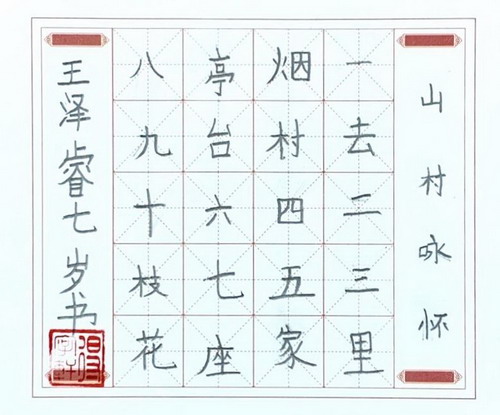 山村咏怀
一去二三里
烟村四五家
亭台六七座
八九十枝花
王泽睿七岁书